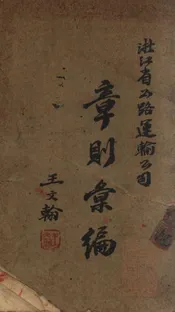 浙江省公路運輸公司
章則彙編
王文翰